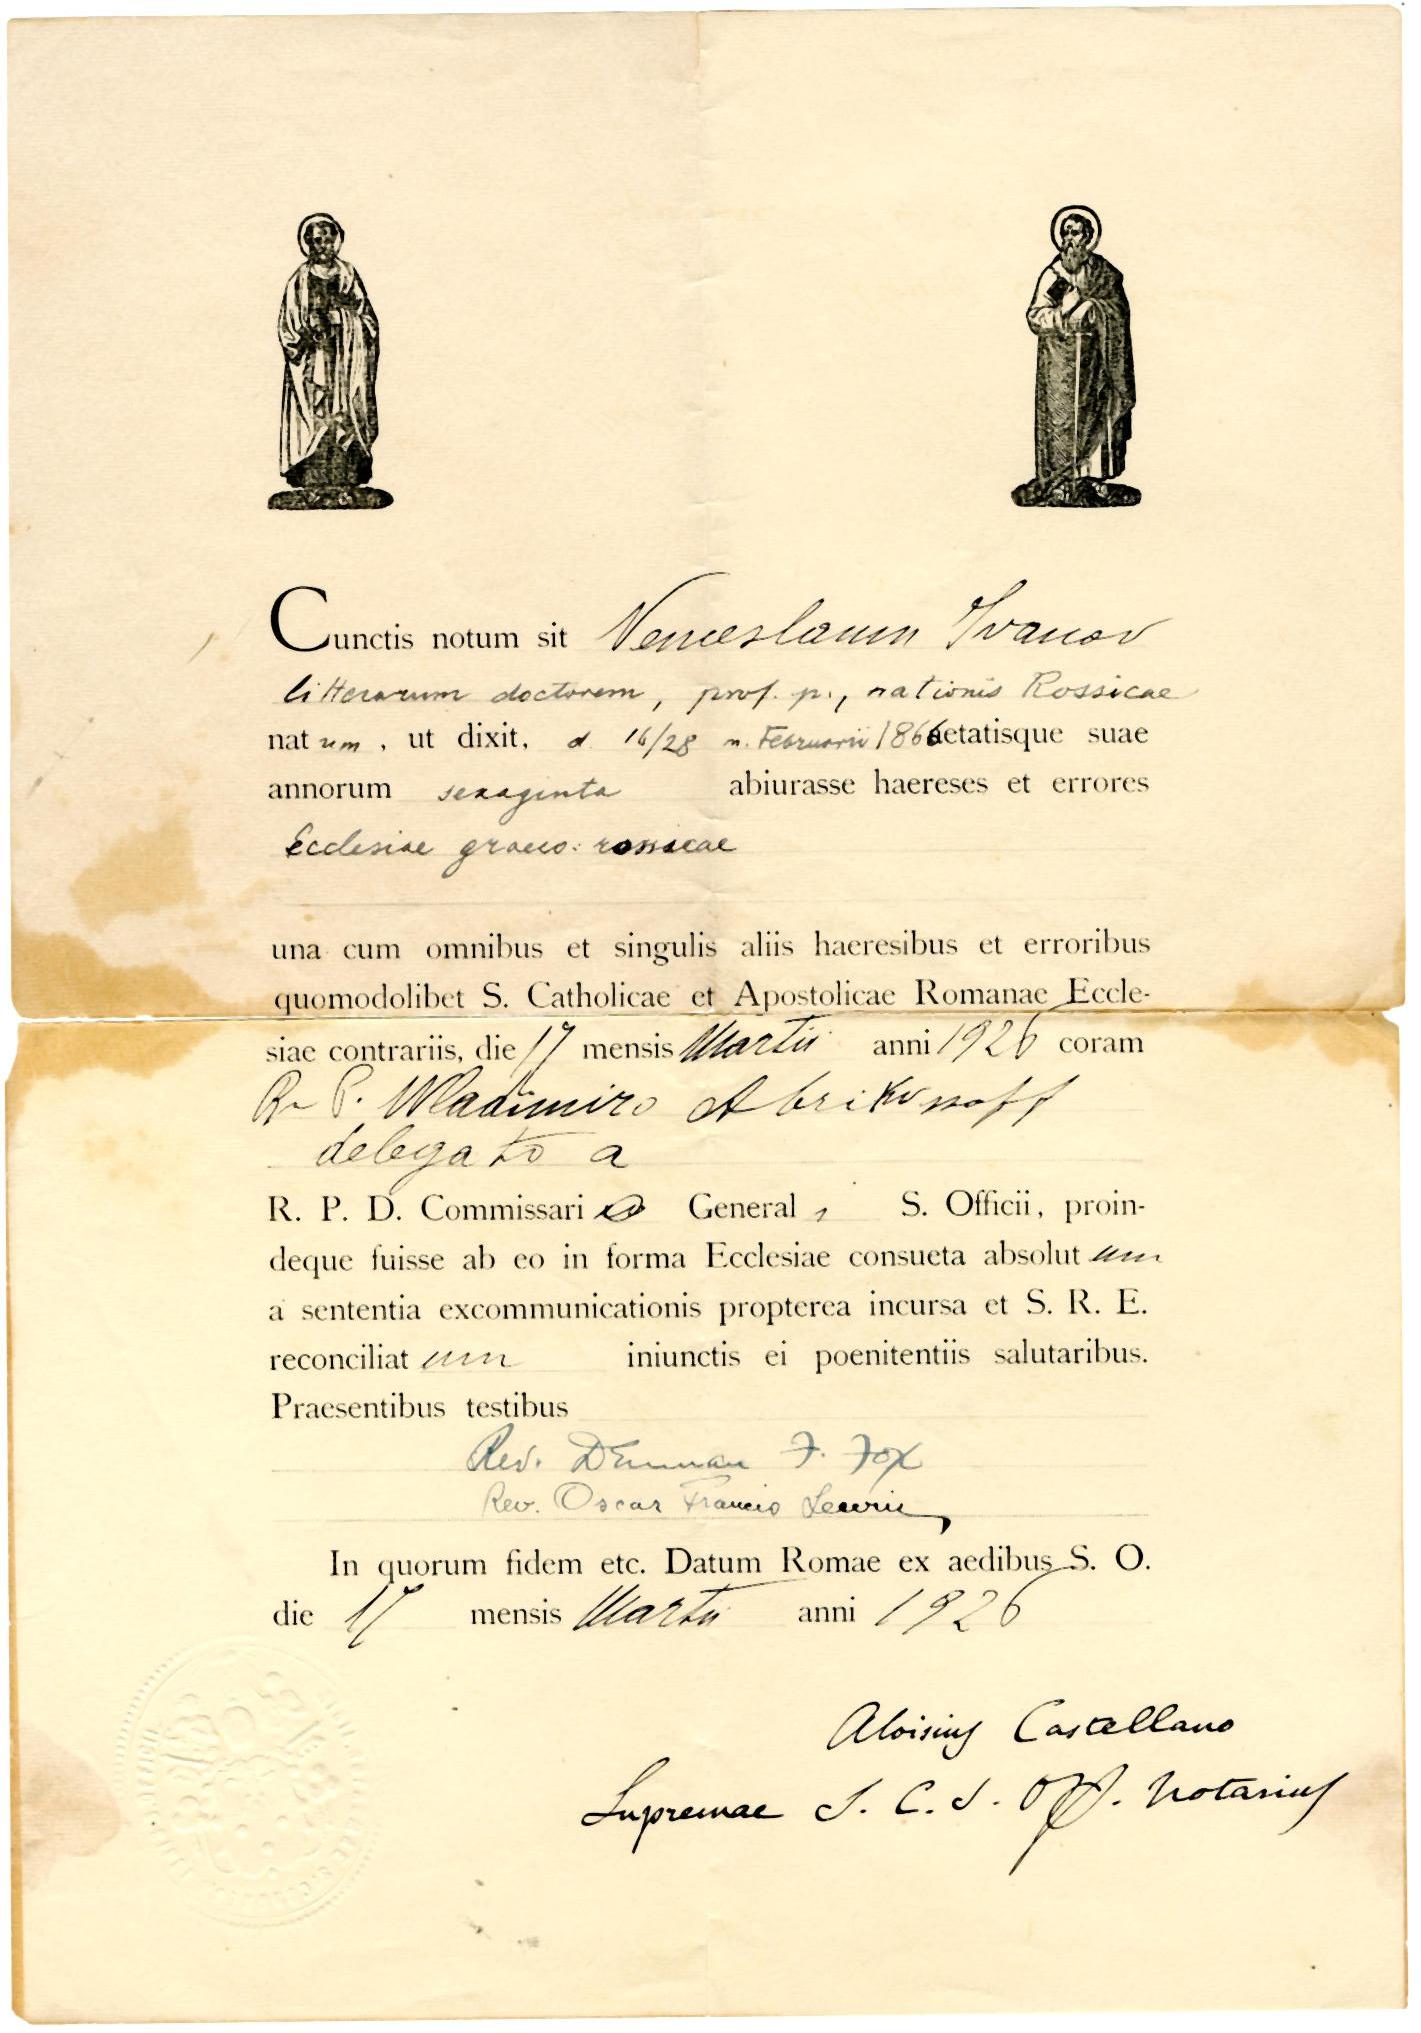 Cunctis notum sit Venceslaum Ivanov
litterarum doctorem, prof. p., nationis Rossicae
natum, ut dixit, d. 16/28 m. Februarii 1866 aetatisque suae
annorum sexaginta abiurasse haereses et errores
Ecclesiae graeco-rossicae
una cum omnibus et singulis aliis haeresibus et erroribus
quomodolibet S. Catholicae et Apostolicae Romanae Eccle-
siae contrariis, die 17 mensis Martii anni 1926 coram
R. P. Wladimiro Abrikossoff
delegato a
R. P. D. Commissario General i S. Officii, proin-
deque fuisse ab eo in forma Ecclesiae consueta absolutum
a sententia excommunicationis propterea incursa et S. R. E.
reconciliatum iniunctis ei poenitentiis salutaribus.
Praesentibus testibus
Rev. F. Fox
Rev. Oscar Francis
In quorum fidem etc. Datum Romae ex aedibus S. O.
die 17 mensis Martii anni 1926
Aloisius Castellano
Supremae S. C. S. Off. Notarius